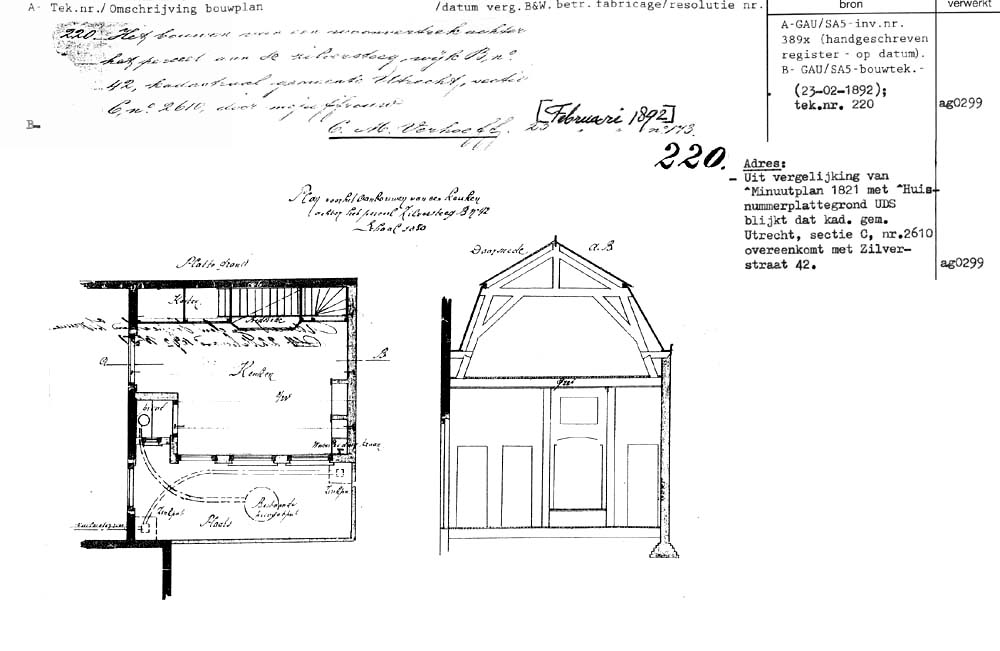 A- Tek.nr./ Omschrijving bouwplan /datum verg.B&W.betr.fabricage/resolutie nr.
bron
verwerkt
220. Het bouwen van een woonvertrek achter
het perceel aan de Zilversteeg, wijk B, nº
42, kadastraal gemeente Utrecht, sectie
C, nº 2610, door mejuffrouw
C. M. Verhoeff.
[Februari 1892]
23 " " nº 173.
B-
A-GAU/SA5-inv.nr.
389x (handgeschreven
register - op datum).
B- GAU/SA5-bouwtek.-
(23-02-1892);
tek.nr. 220
ag0299
220.
Adres:
- Uit vergelijking van
^Minuutplan 1821 met ^Huis-
nummerplattegrond UDS
blijkt dat kad. gem.
Utrecht, sectie C, nr.2610
overeenkomt met Zilver-
straat 42.
ag0299
Plan voor het aanbouwen van een Keuken
achter het perceel Zilversteeg B nº 42
Schaal 1 à 50
Platte Grond
Doorsnede A.B
Kasten
A
B
Keuken
Zinkput
Zinkput
Bestaande
Plaats